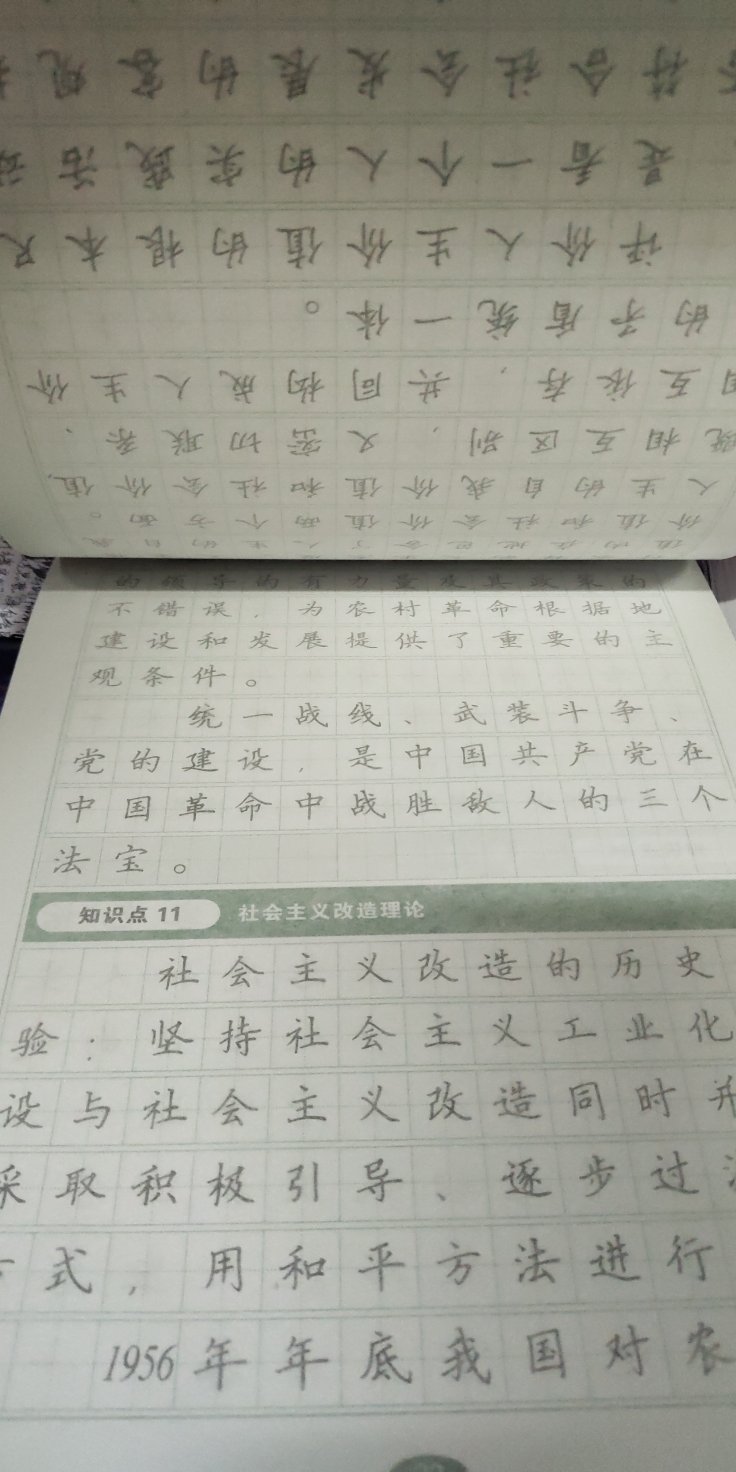 价值和社会价值两个方面。
人生的自我价值和社会价值，
既相互区别，又密切联系、
相互依存，共同构成人生价
的矛盾统一体。
评价人生价值的根本尺
是看一个人的实践活动
符合社会发展的客观
的领导的有力量及其政策的
不错误，为农村革命根据地
建设和发展提供了重要的主
观条件。
统一战线、武装斗争、
党的建设，是中国共产党在
中国革命中战胜敌人的三个
法宝。
知识点 11 社会主义改造理论
社会主义改造的历史
验：坚持社会主义工业化
设与社会主义改造同时并
采取积极引导、逐步过
式，用和平方法进行
1956年年底我国对农